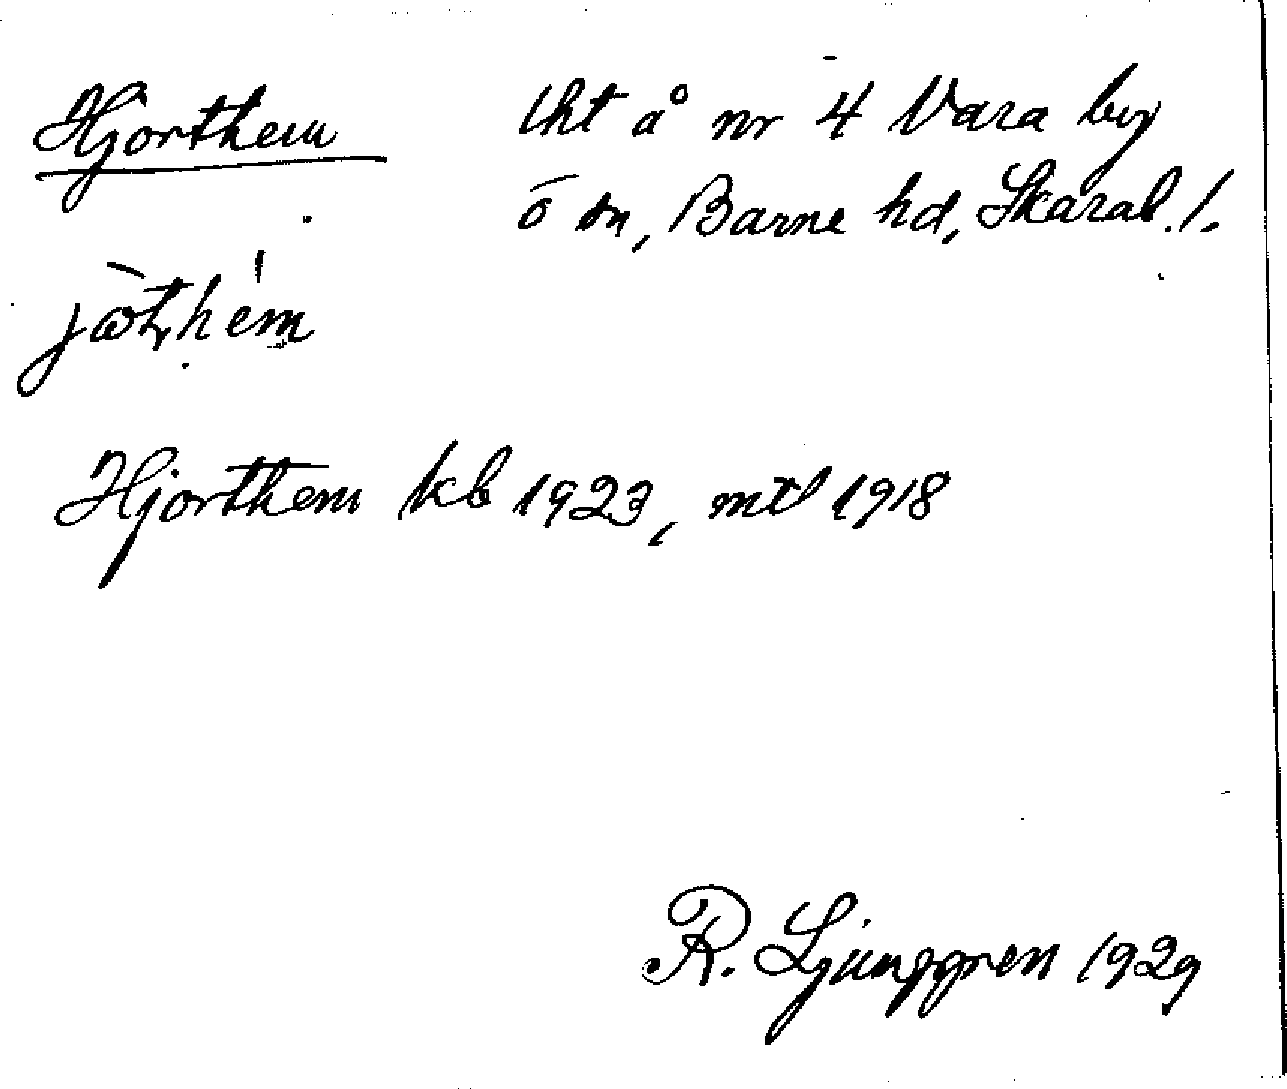 Hjorthem
lht å nr 4 Vara by
ö sn, Barne hd, Skarab. l.
Hjorthem kb 1923, mtl 1918
R. Ljunggren 1929